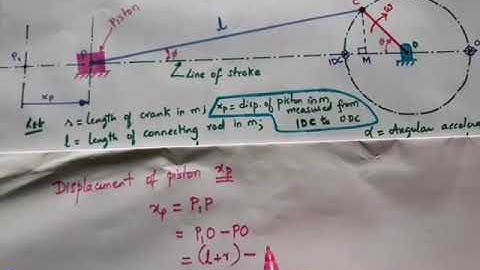 Piston
C
ω
l
P₁
P
φ
θ
O
IDC
M
Line of stroke
xp
Let r = length of crank in m;
l = length of connecting rod in m;
xp = disp. of piston in m measured from IDC to ODC
α = Angular acceler
Displacement of piston xp
xp = P₁P
= P₁O - PO
= (l+r) -